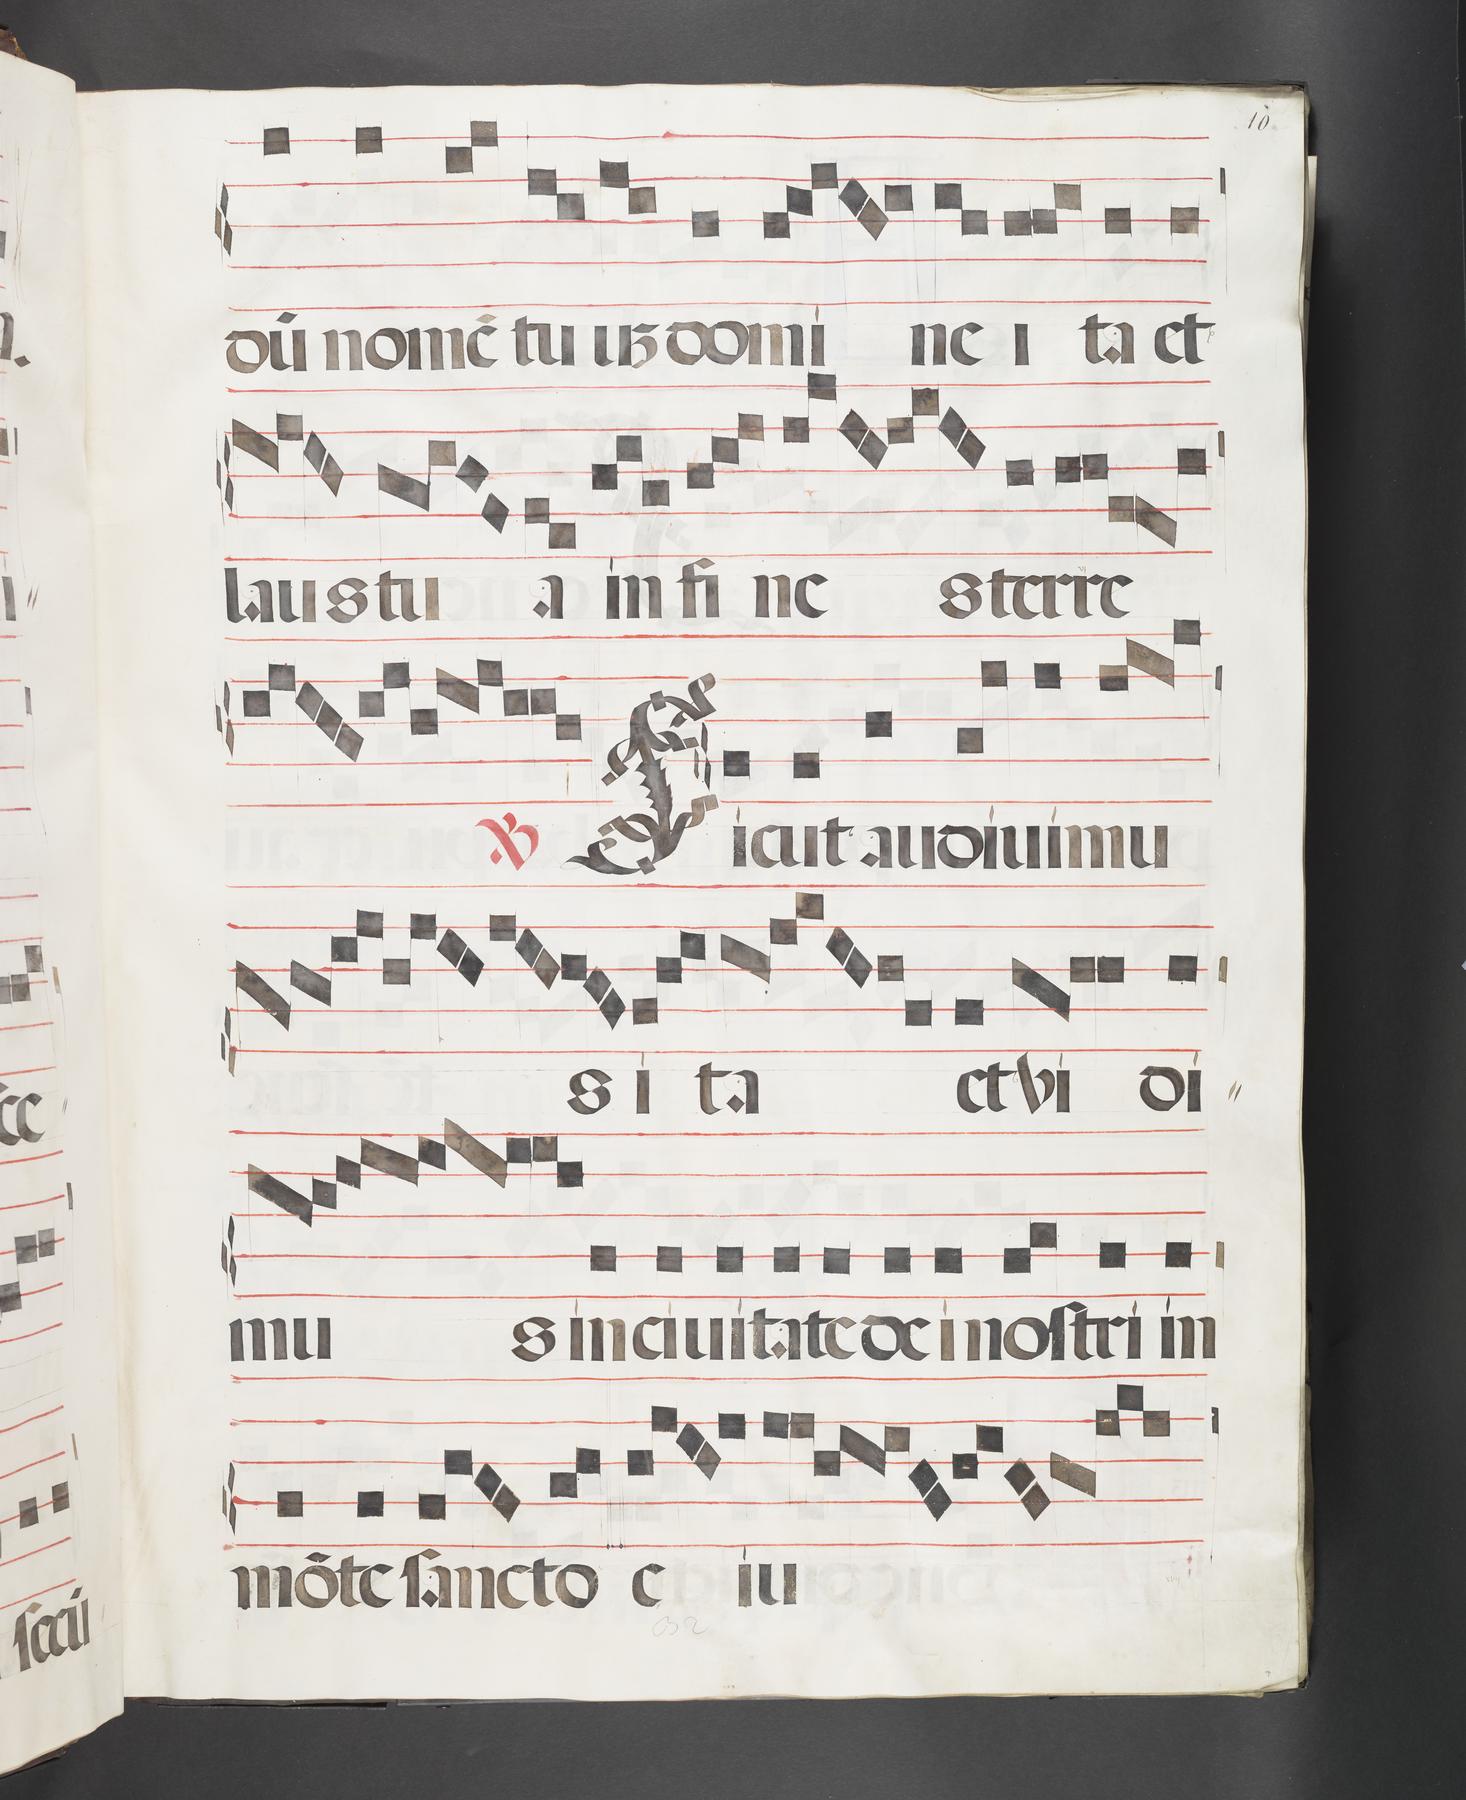 10
dū nomē tu uʒ domi ne i ta et
laus tu a in fi ne s terre
℣ Sicut audiuimu
s i ta et vi di
mu s in ciuitate dei nostri in
mōte sancto e iu